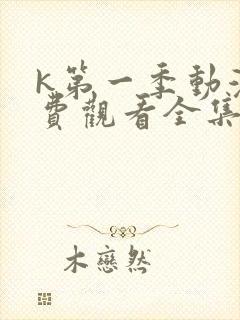 K第一季動
費觀看全集
木戀然